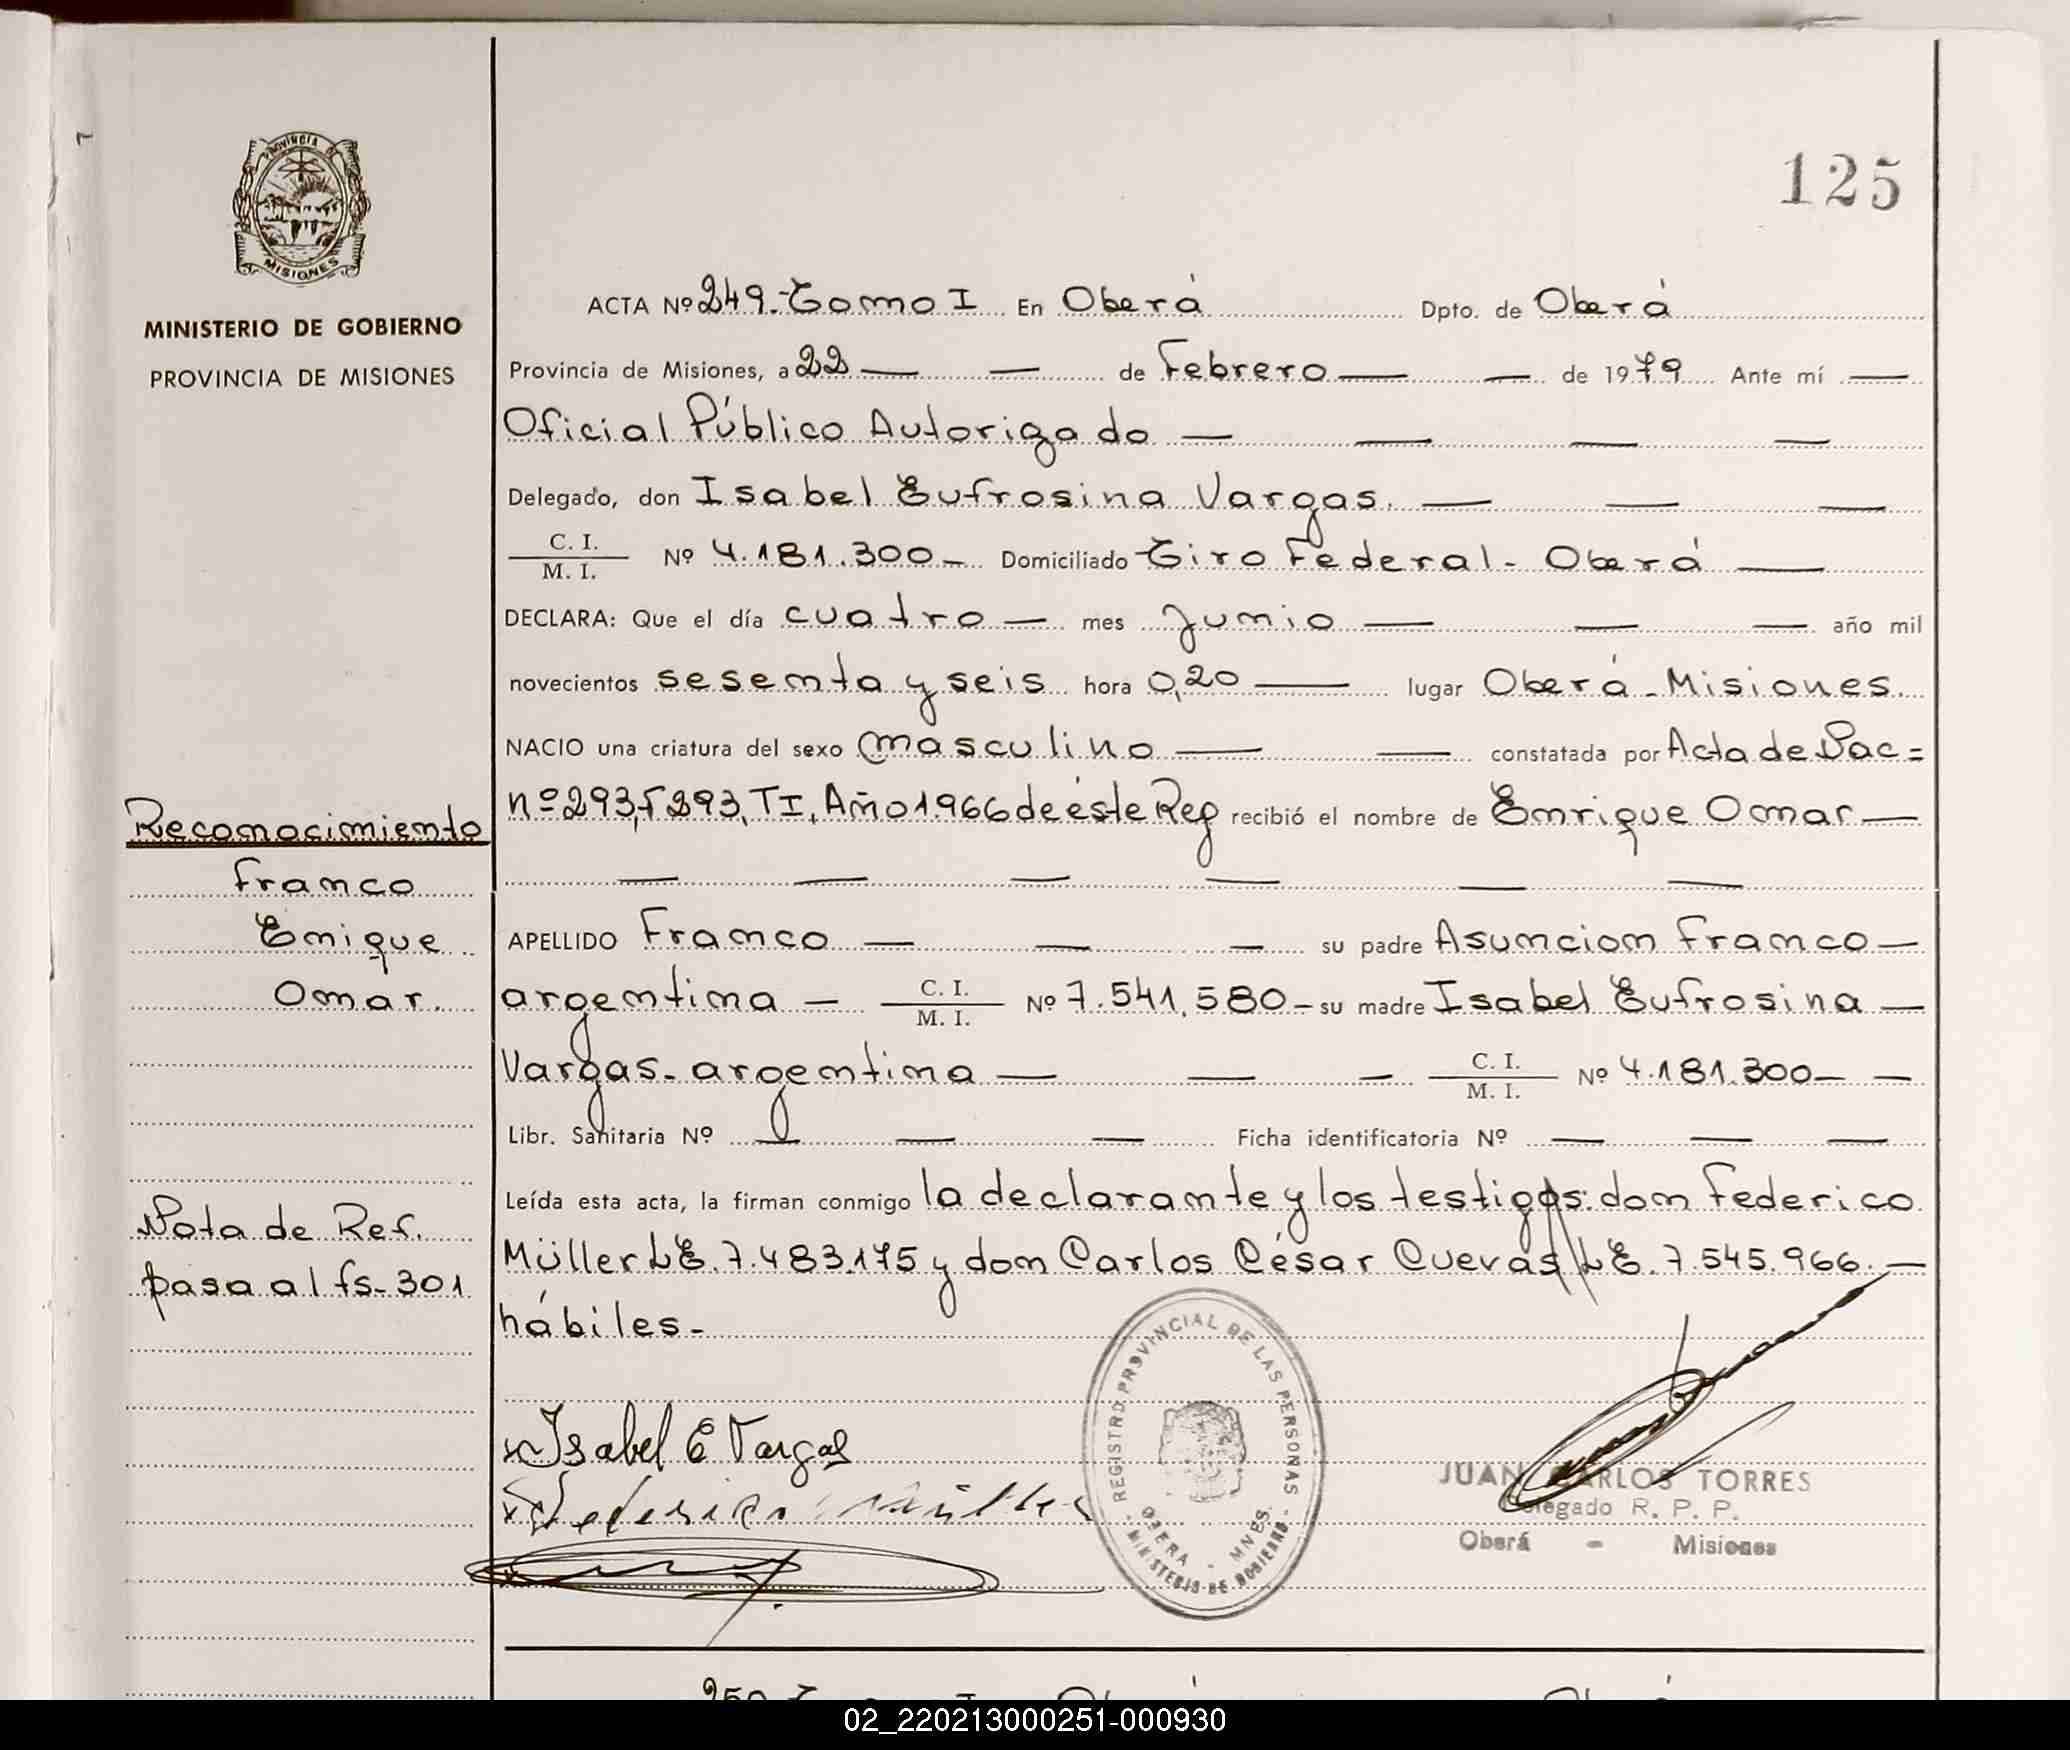 PROVINCIA DE
MISIONES
MINISTERIO DE GOBIERNO
PROVINCIA DE MISIONES
125
ACTA Nº 249.-Tomo I En Oberá Dpto. de Oberá
Provincia de Misiones, a 22 — — de Febrero — — de 1979 Ante mí —
Oficial Público Autorizado — — — —
Delegado, don Isabel Eufrosina Vargas. — — —
C. I.
M. I. Nº 4.181.300 - Domiciliado Tiro Federal - Oberá —
DECLARA: Que el día cuatro — mes Junio — — — año mil
novecientos sesenta y seis hora 0,20 — lugar Oberá - Misiones
NACIO una criatura del sexo masculino — — constatada por Acta de Nac =
nº 293, F 293, TI, Año 1.966 de éste Reg recibió el nombre de Enrique Omar —
— — — — — —
APELLIDO Franco — — — su padre Asuncion Franco —
argentina — C. I.
M. I. Nº 7.541.580 - su madre Isabel Eufrosina —
Vargas - argentina — — — C. I.
M. I. Nº 4.181.300 — —
Libr. Sanitaria Nº — — — Ficha identificatoria Nº — — —
Leída esta acta, la firman conmigo la declarante y los testigos: don Federico
Müller LE. 7.483.175 y don Carlos César Cuevas LE. 7.545.966. —
hábiles -
Reconocimiento
Franco
Enique
Omar.
Nota de Ref.
pasa al fs- 301
Isabel E Vargas
Federico Müller
REGISTRO PROVINCIAL DE LAS PERSONAS
OBERA - MNES.
- MINISTERIO DE GOBIERNO -
JUAN CARLOS TORRES
Delegado R. P. P.
Oberá - Misiones
02_220213000251-000930